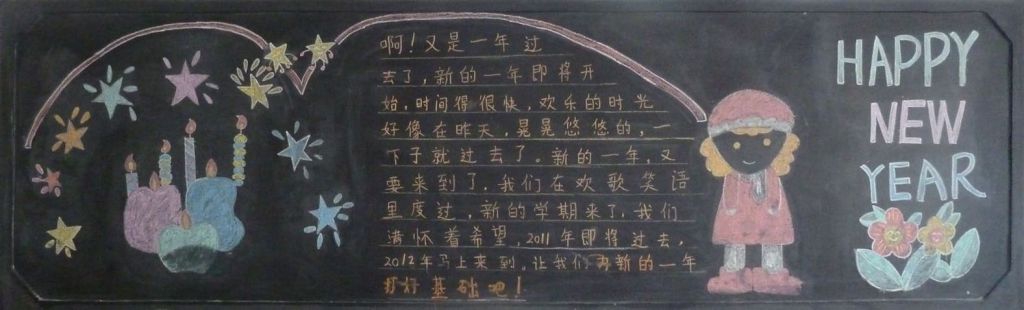 啊！又是一年过
去了，新的一年即将开
始，时间得很快，欢乐的时光
好像在昨天，晃晃悠悠的，一
下子就过去了。新的一年，又
要来到了，我们在欢歌笑语
里度过，新的学期来了，我们
满怀着希望，2011年即将过去，
2012年马上来到，让我们为新的一年
打好基础吧！
HAPPY
NEW
YEAR